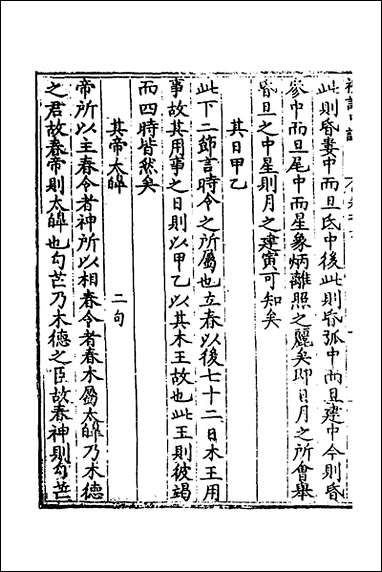 此則昏婁中而旦氐中後此則昏弧中而旦建中今則昏
參中而旦尾中而星象炳離照之麗矣即日月之所會舉
昏旦之中星則月之建寅可知矣
其日甲乙
此下二節言時令之所屬也立春以後七十二日木王用
事故其用事之日則以甲乙以其木王故也此王則彼竭
而四時皆然矣
其帝太皡 二句
帝所以主春令者神所以相春令者春木屬太皡乃木德
之君故春帝則太皡也勾芒乃木德之臣故春神則勾芒